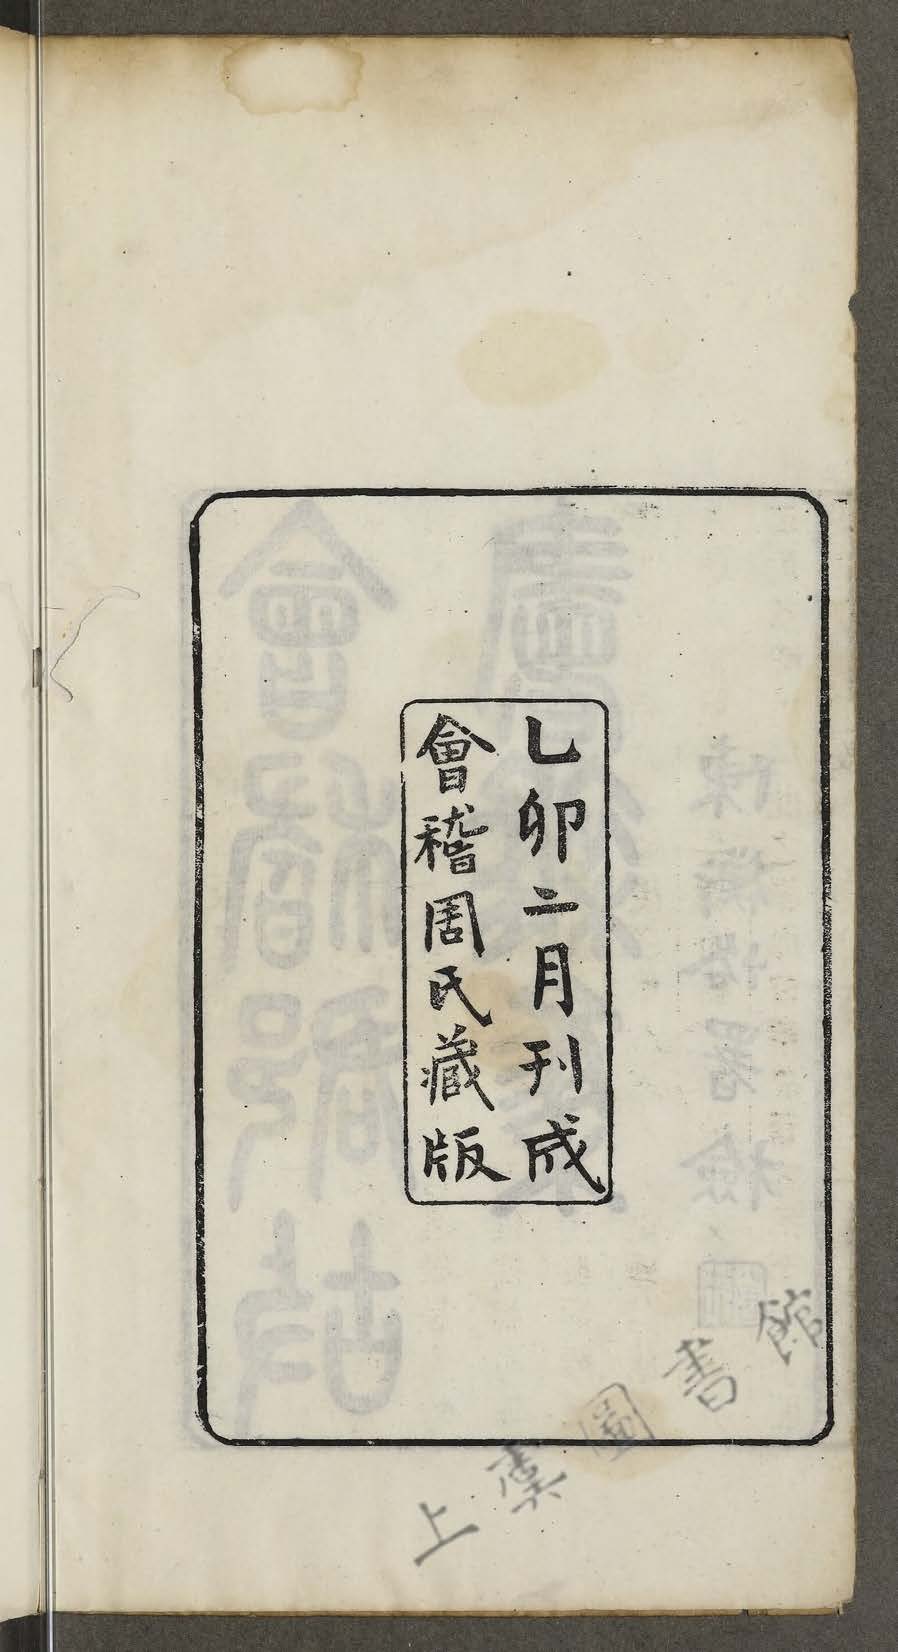 乙卯二月刊成
會稽周氏藏版
上虞圖書館